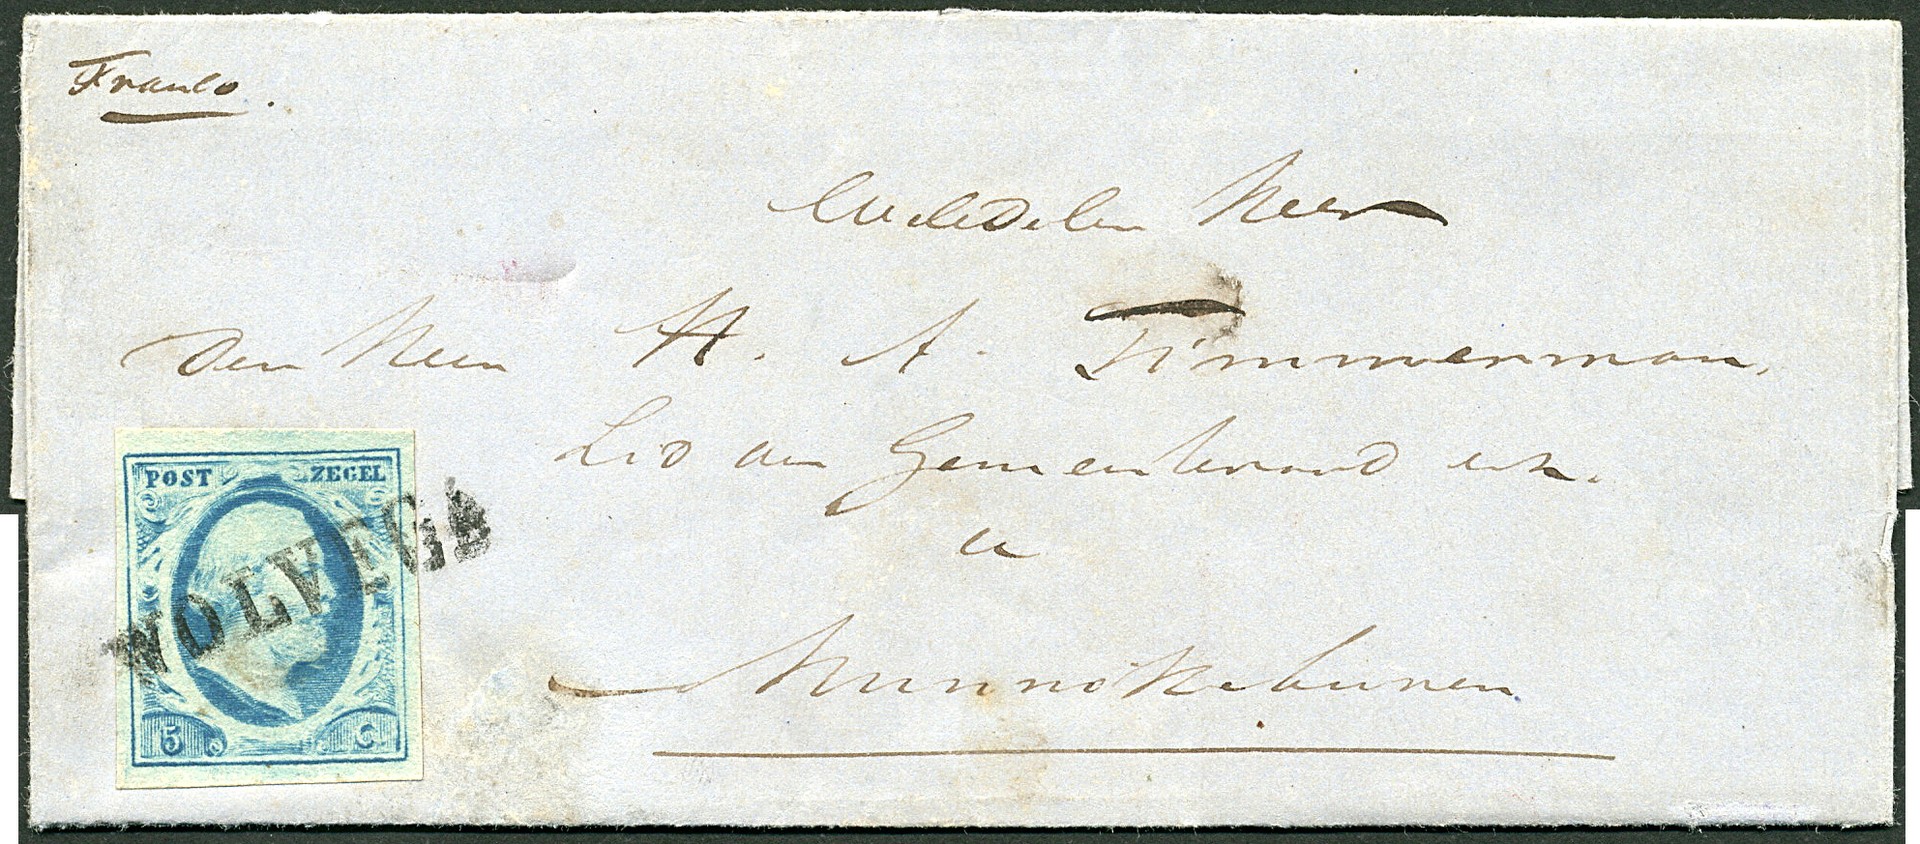 Franco.
WelEdelen Heer
Den Heer H. A. Timmerman,
Lid van Gemeenteraad enz.
te
Munnekeburen
POST ZEGEL
WOLVEGA
5 C.